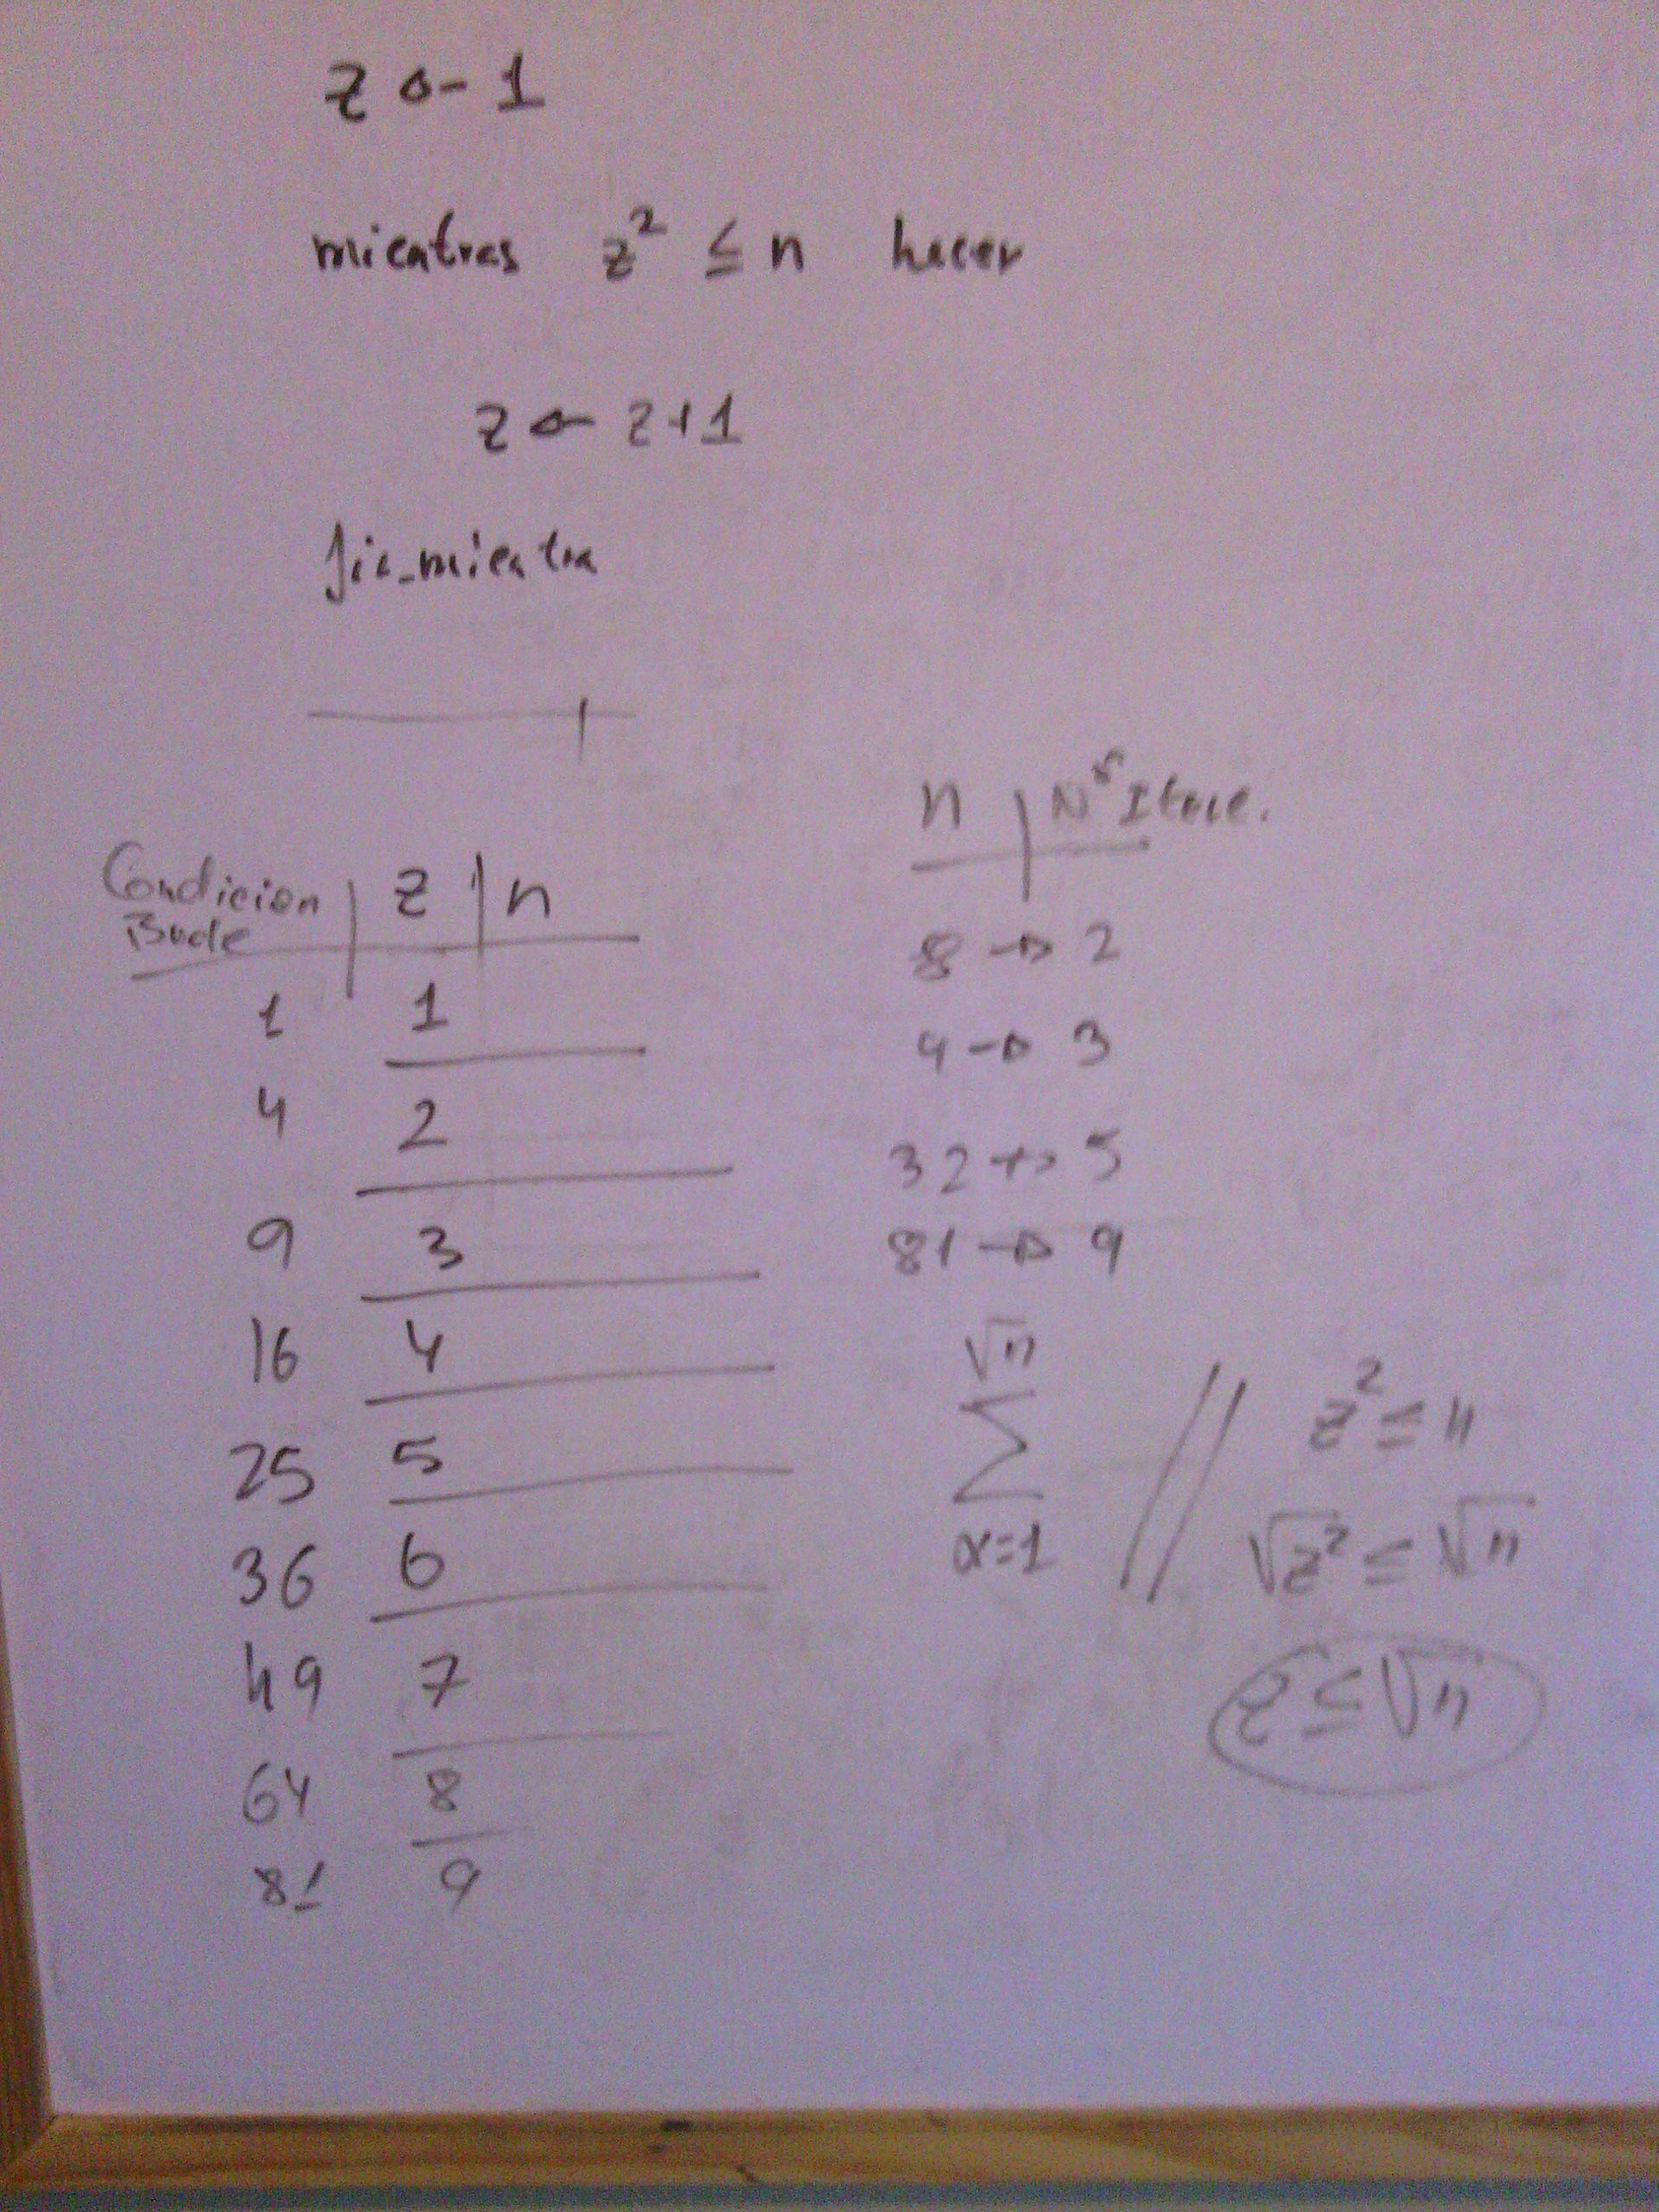 z ← 1
mientras z² ≤ n hacer
z ← z+1
fin_mientra
Condicion | z | n
Bucle
1 1
4 2
9 3
16 4
25 5
36 6
49 7
64 8
81 9
n | Nº Itere.
8 → 2
9 → 3
32 → 5
81 → 9
√n
∑
x=1
// z² ≤ n
√z² ≤ √n
z ≤ √n